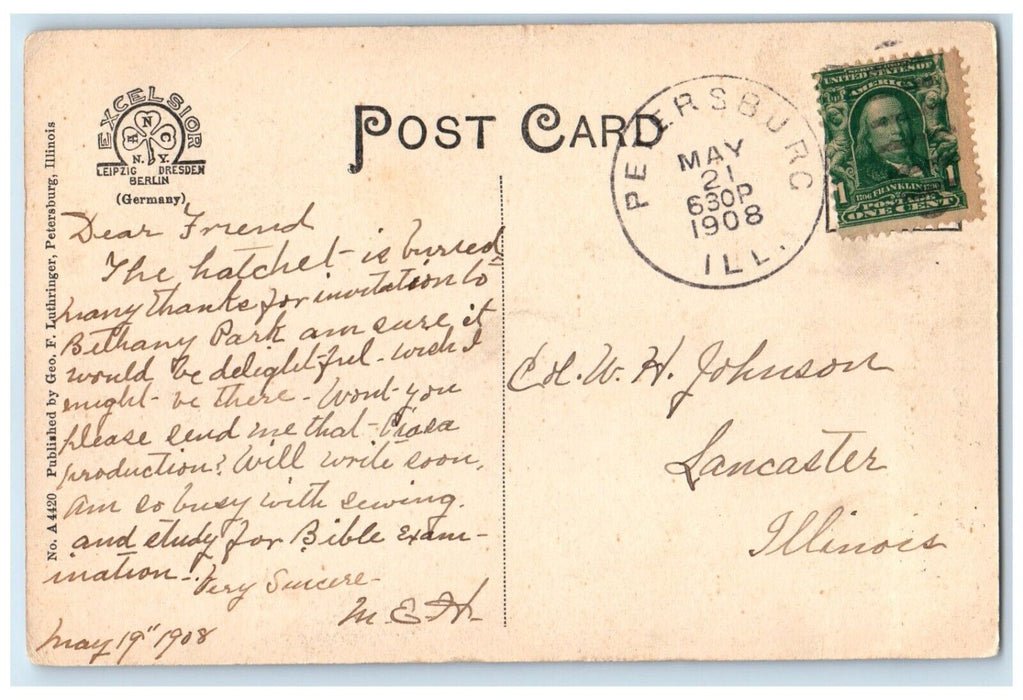 EXCELSIOR
A N C
N.Y.
LEIPZIG DRESDEN
BERLIN
(Germany)
No. A 4420 Published by Geo. F. Luthringer, Petersburg, Illinois
POST CARD
PETERSBURG
MAY
21
630P
1908
ILL.
UNITED STATES OF
AMERICA
1 1
1706 FRANKLIN 1790
POSTAGE
ONE CENT
Dear Friend
The hatchet is buried
many thanks for invitation to
Bethany Park am sure it
would be delightful - wish I
might be there - Wont you
please send me that Piasa
production? Will write soon,
Am so busy with sewing
and study for Bible Exam-
ination -
Very Sincere
M E H.
May 19" 1908
Col. W. H. Johnson
Lancaster
Illinois